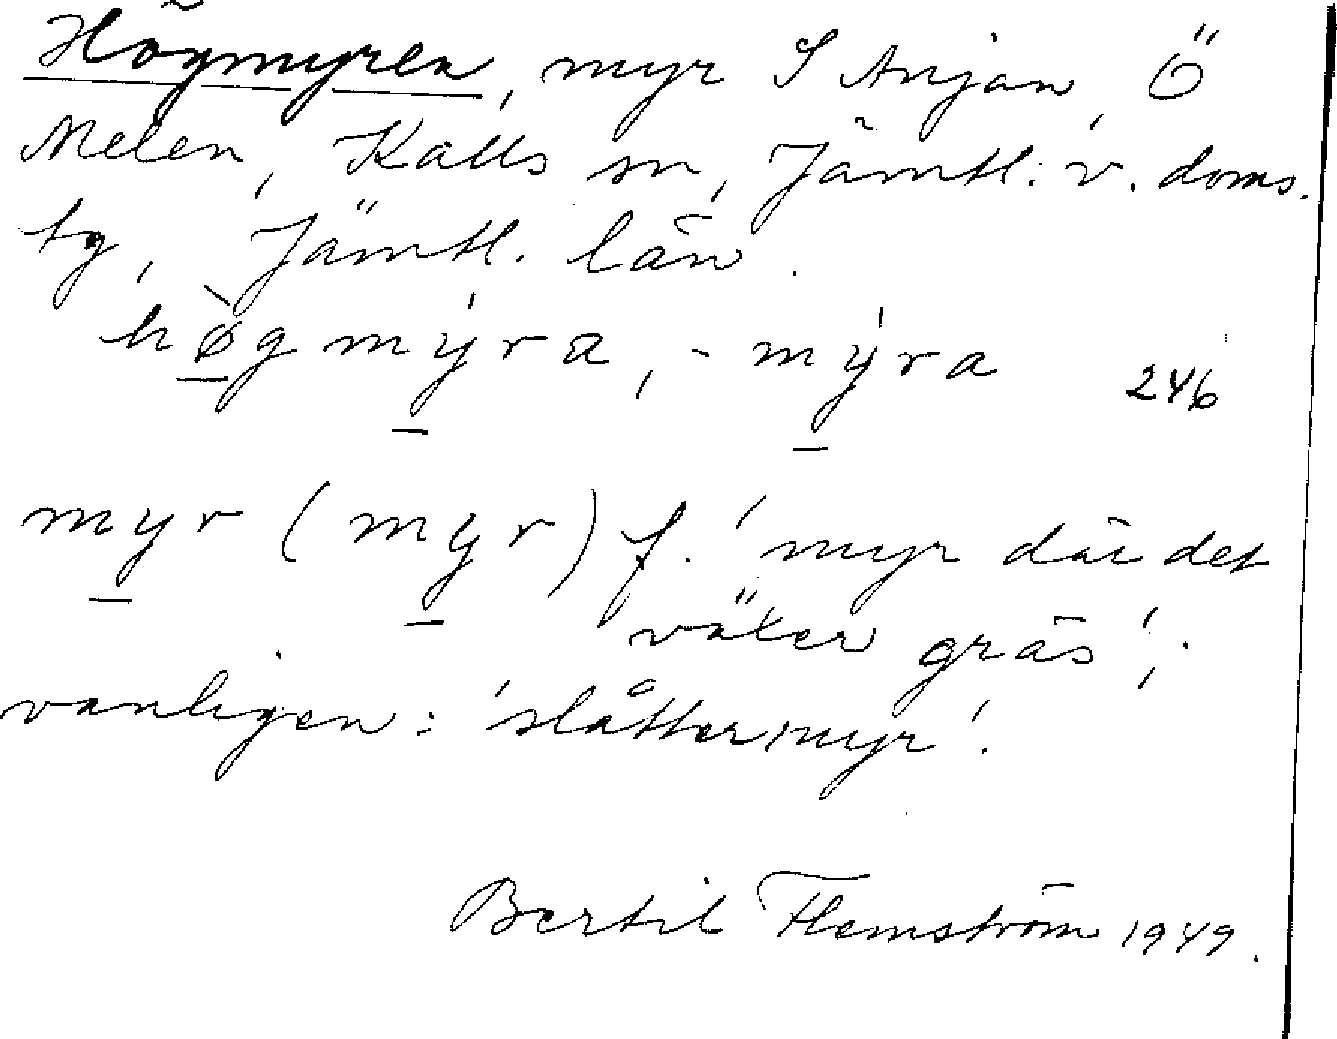 Högmyren, myr S Anjan, Ö
Melen, Kalls sn, Jämtl. v. doms.
tg, Jämtl. län.
hø̀gmýra, -mýra 246
myr (myr) f. 'myr där det
växer gräs';
vanligen: 'slåttermyr'.
Bertil Flemström 1949.